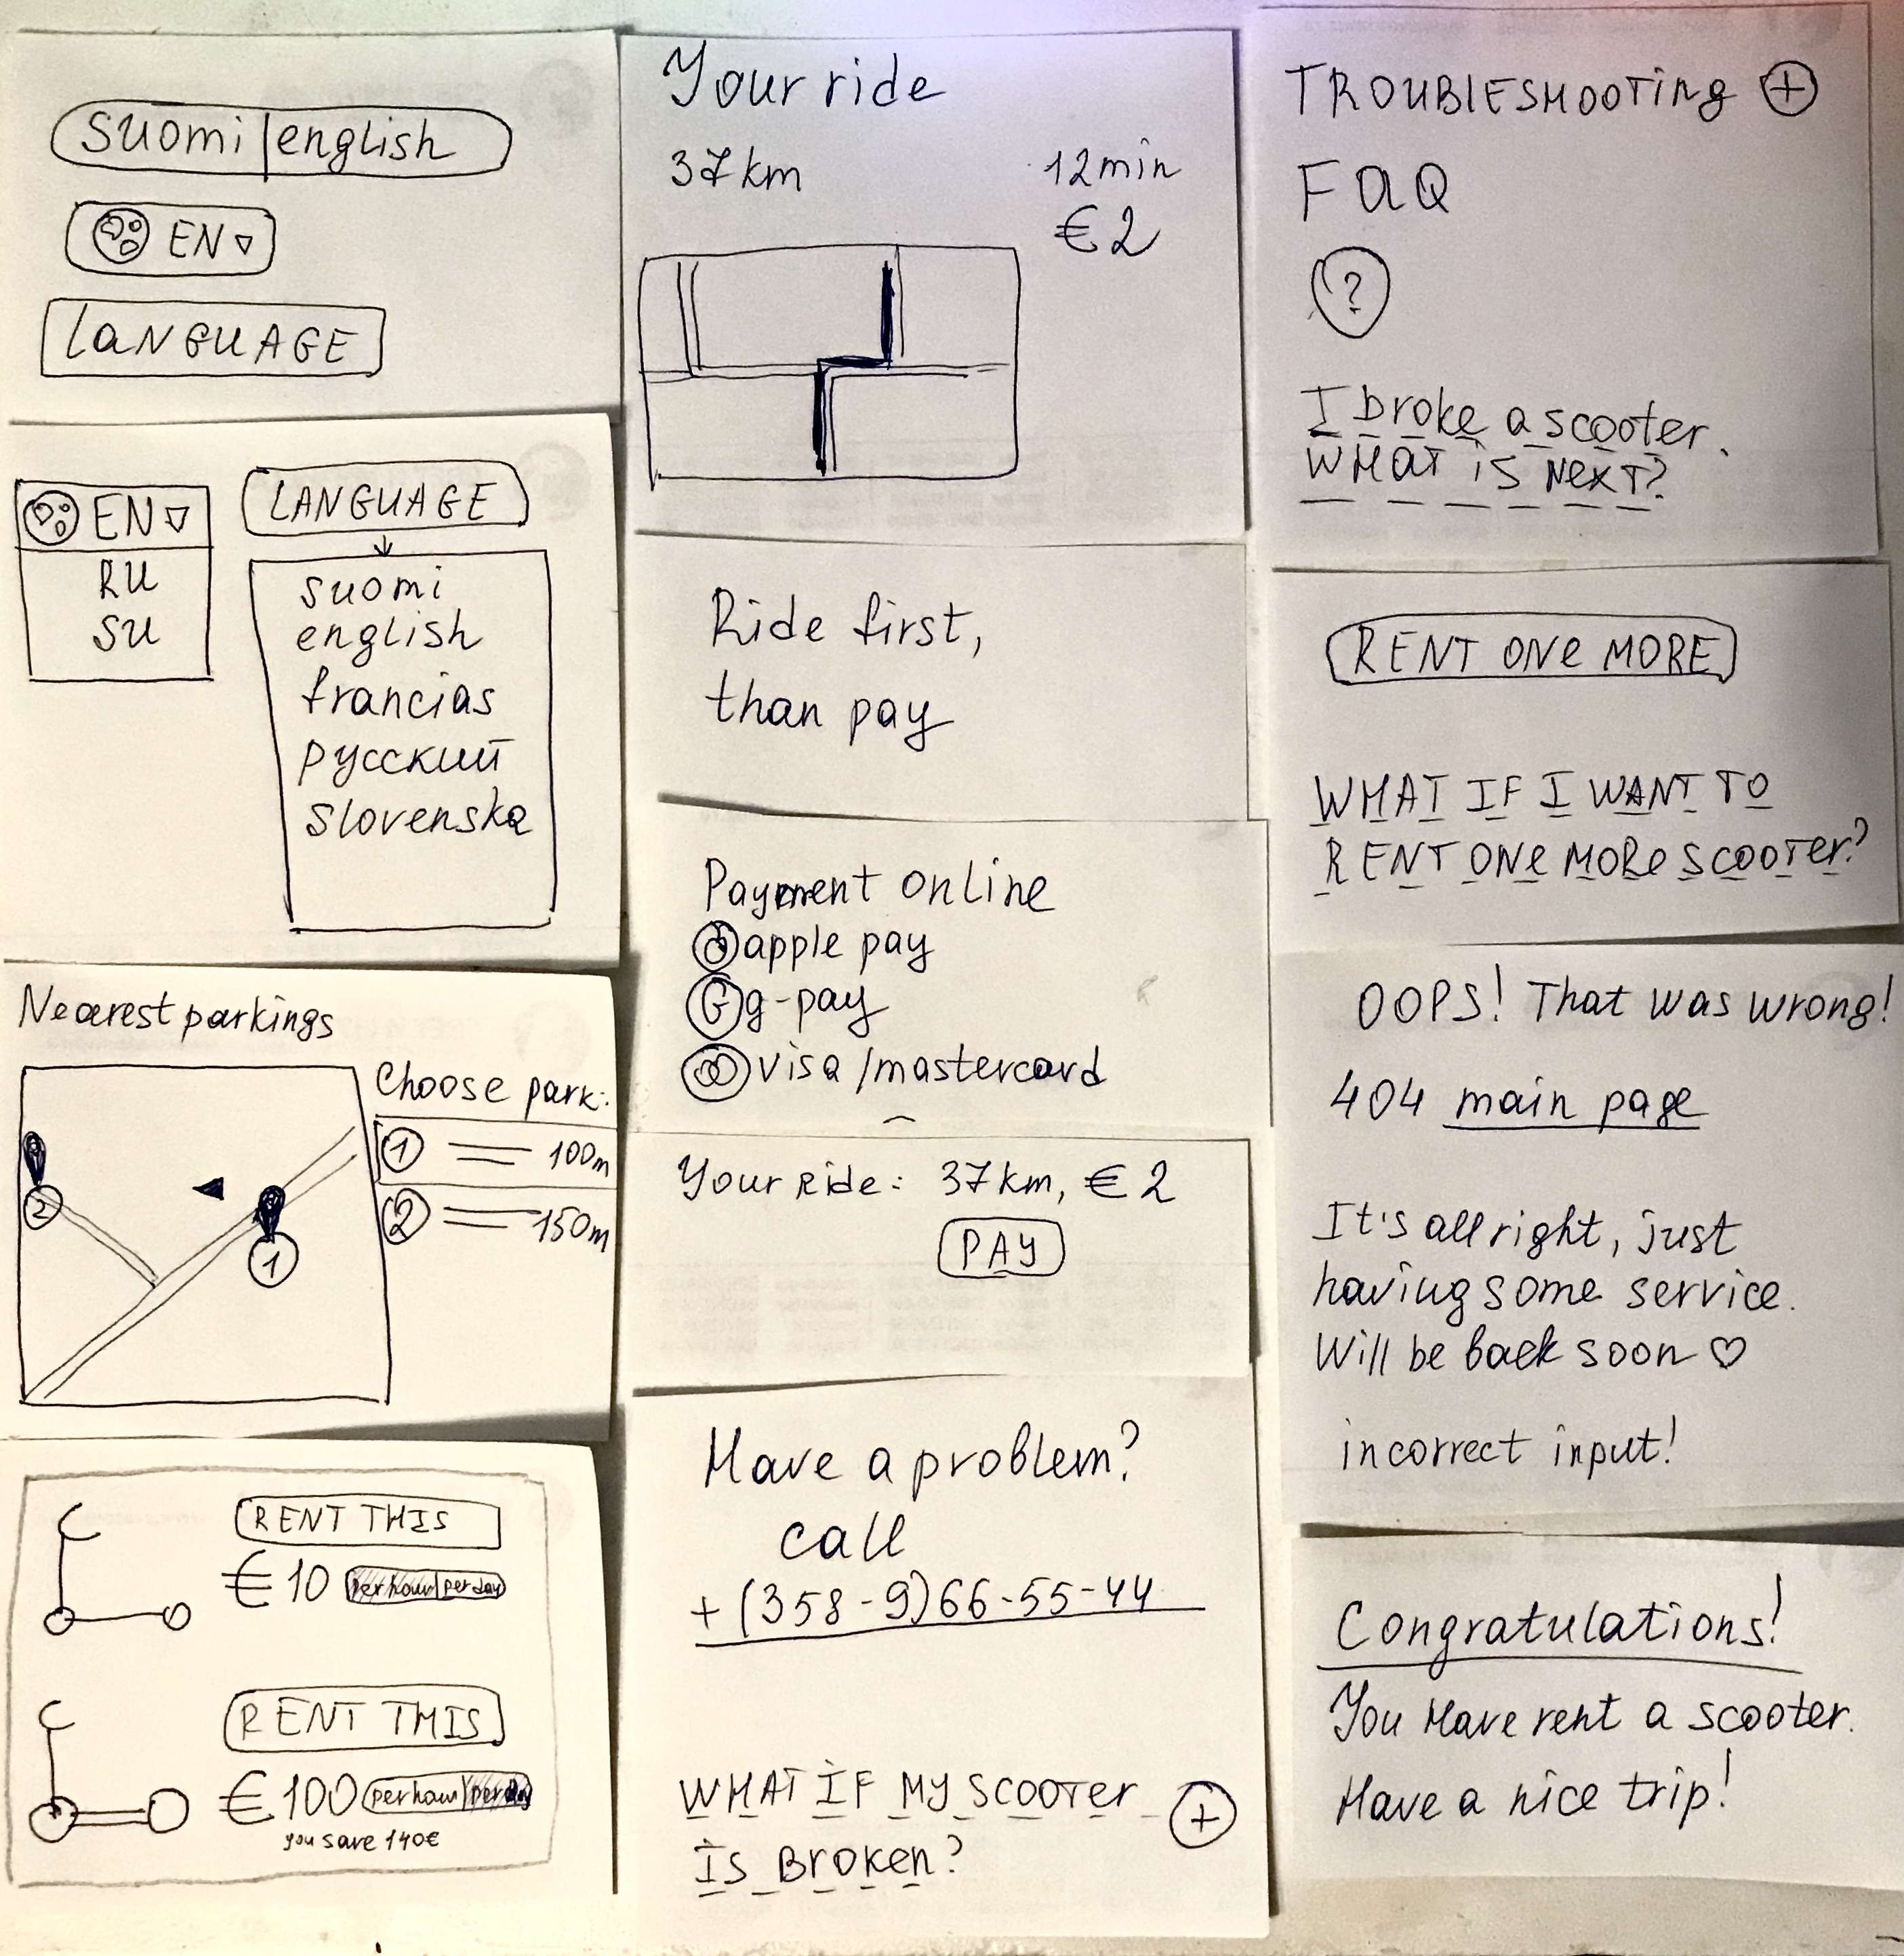 suomi | english
EN
LANGUAGE
EN
RU
SU
LANGUAGE
suomi
english
francias
русский
slovenska
Nearest parkings
Choose park:
1 100m
2 150m
2
1
RENT THIS
€ 10 per hour | per day
RENT THIS
€ 100 per hour | per day
you save 140€
Your ride
37km 12min
€2
Ride first,
than pay
Payment online
apple pay
G g-pay
visa / mastercard
Your Ride: 37km, €2
PAY
Have a problem?
call
+(358-9)66-55-44
WHAT IF MY SCOOTER
IS BROKEN?
+
TROUBLESHOOTING +
FAQ
?
I broke a scooter.
WHAT iS NEXT?
RENT ONE MORE
WHAT IF I WANT TO
RENT ONE MORE SCOOTER?
OOPS! That was wrong!
404 main page
It's all right, just
having some service.
Will be back soon ♡
incorrect input!
Congratulations!
You Have rent a scooter.
Have a nice trip!